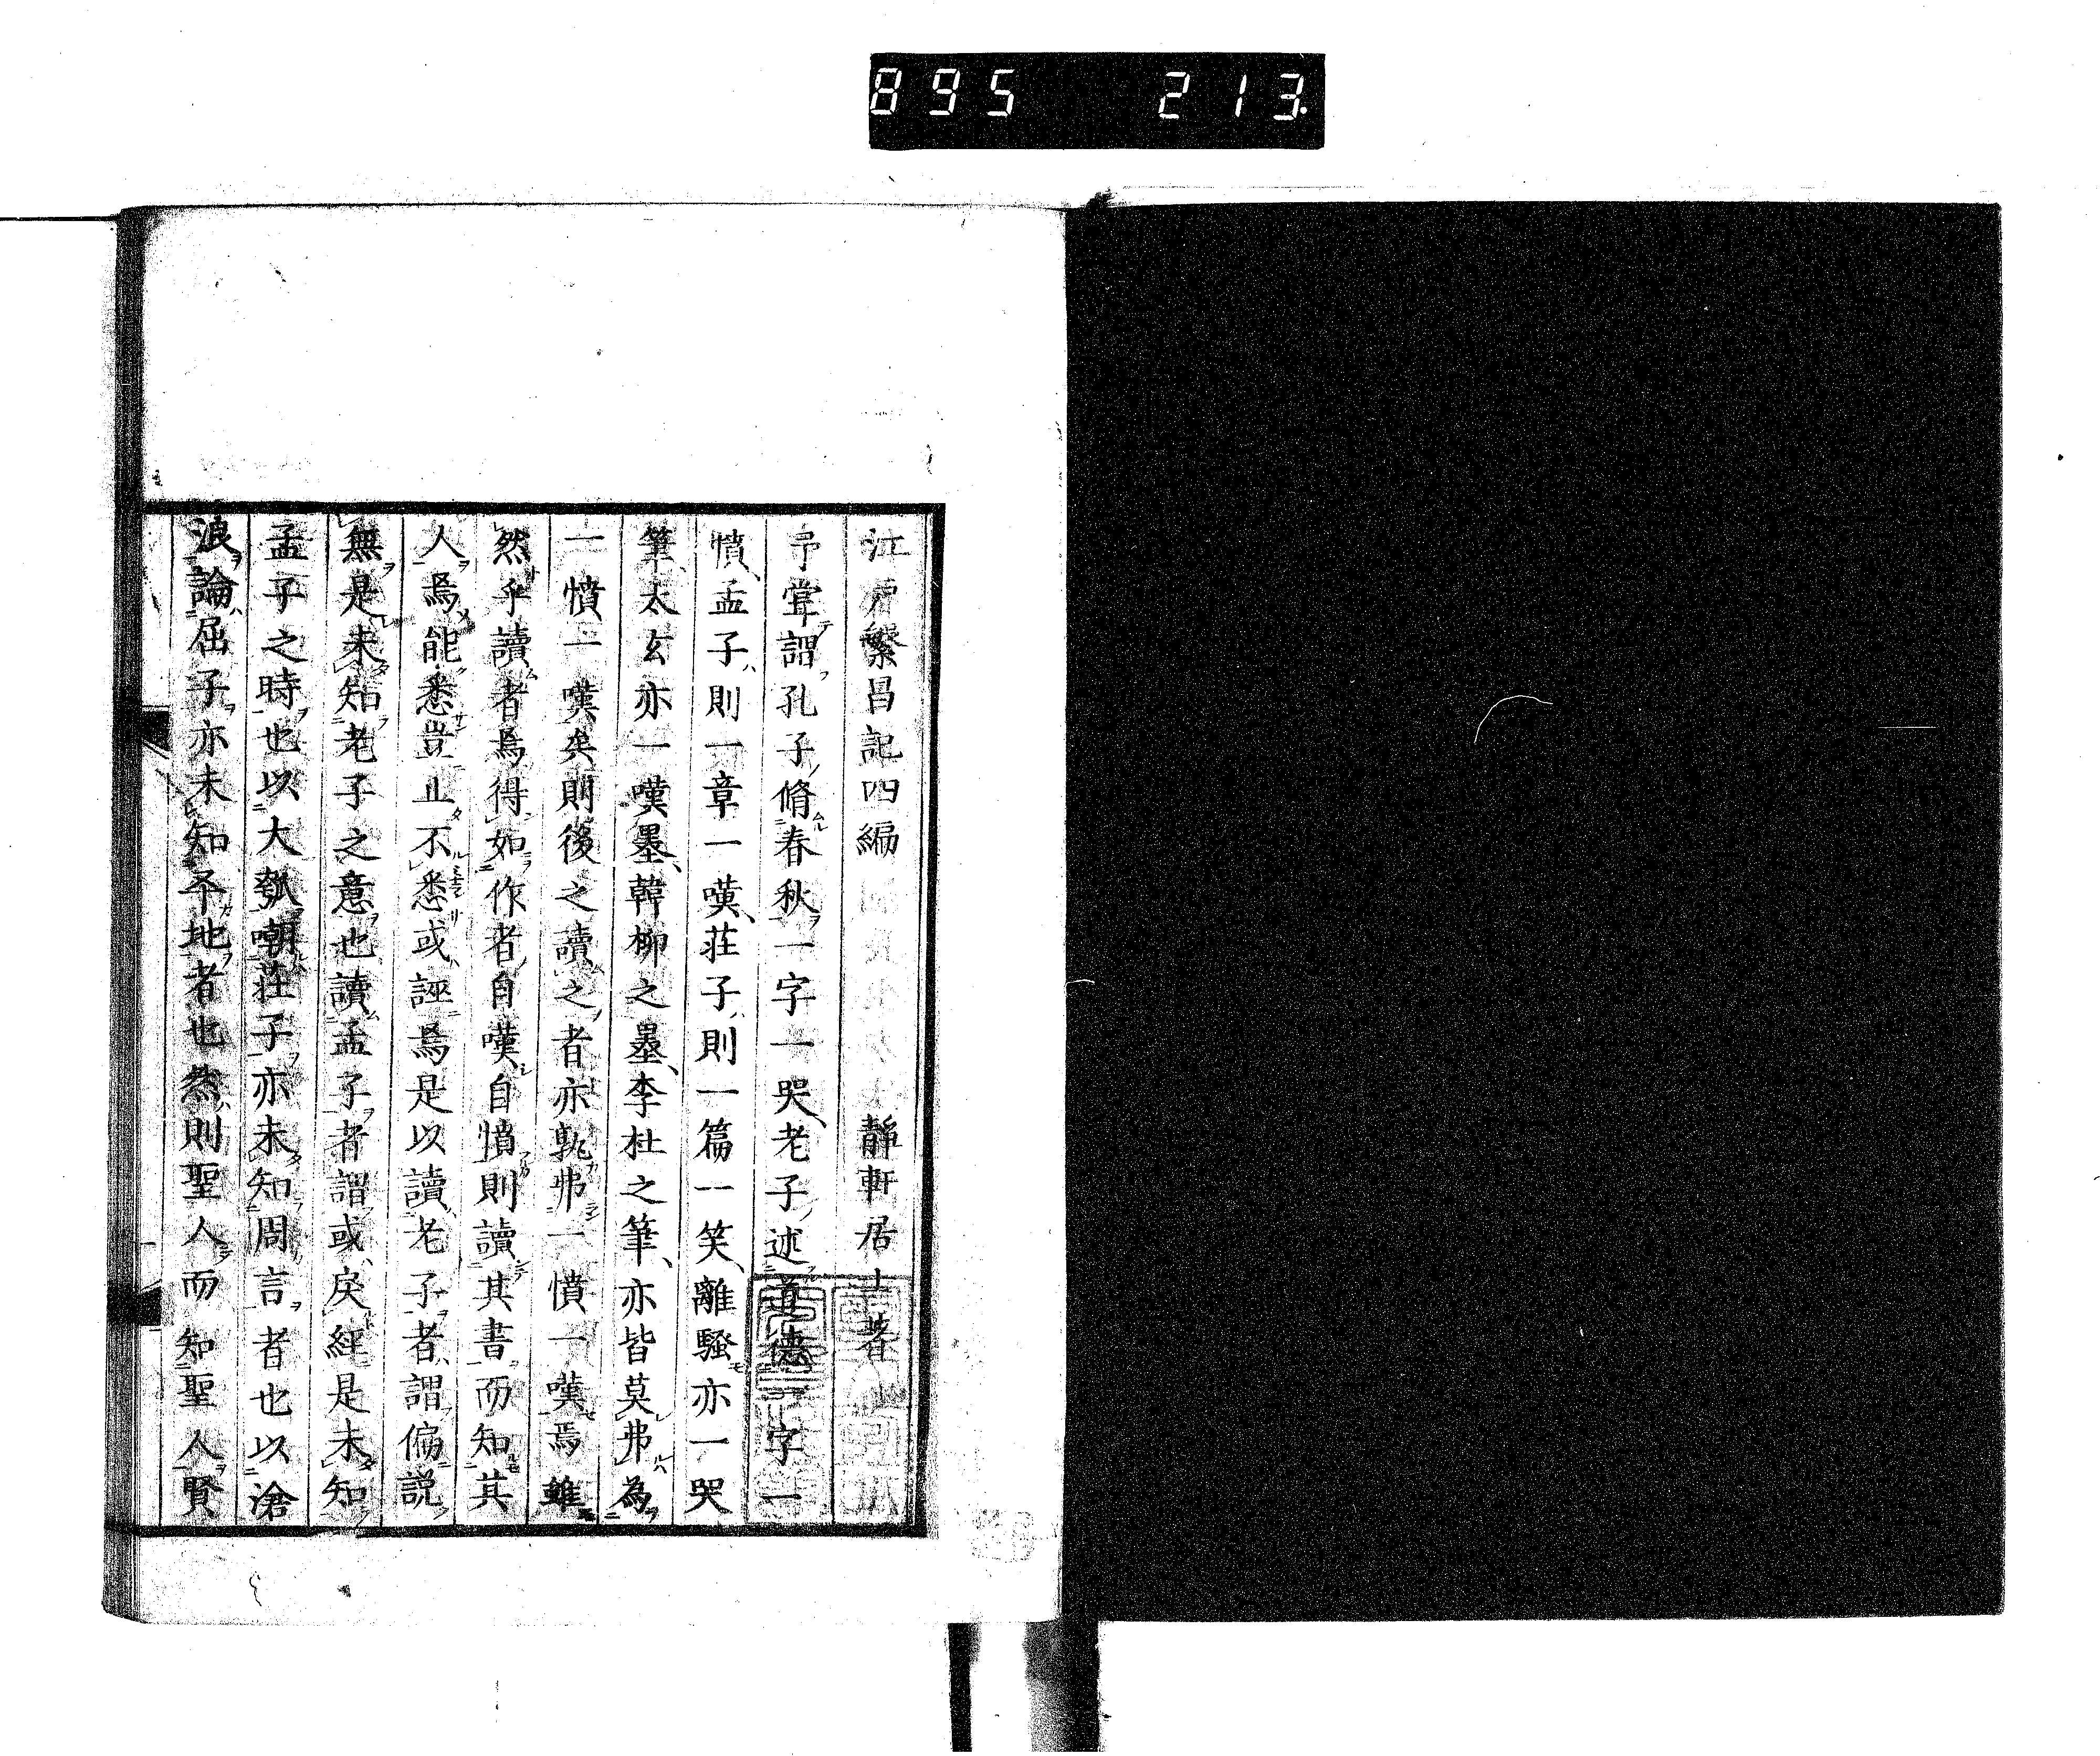 895 213
江戸繁昌記四編 靜軒居士著
予嘗謂孔子脩春秋一字一哭、老子述道德一字一
憤、孟子則一章一嘆、荘子則一篇一笑、離騷亦一哭
筆、太玄亦一嘆墨、韓柳之墨、李杜之筆、亦皆莫弗為
一憤一嘆矣則後之讀之者亦孰弗一憤一嘆焉雖
然乎讀者焉得如作者自嘆自憤則讀其書而知其
人焉能悉豈止不悉或誣焉是以讀老子者謂偏説
無是未知老子之意也讀孟子者謂或戾經是未知
孟子之時也以大瓠嘲荘子亦未知周言者也以滄
浪論屈子亦未知予地者也然則聖人而知聖人賢